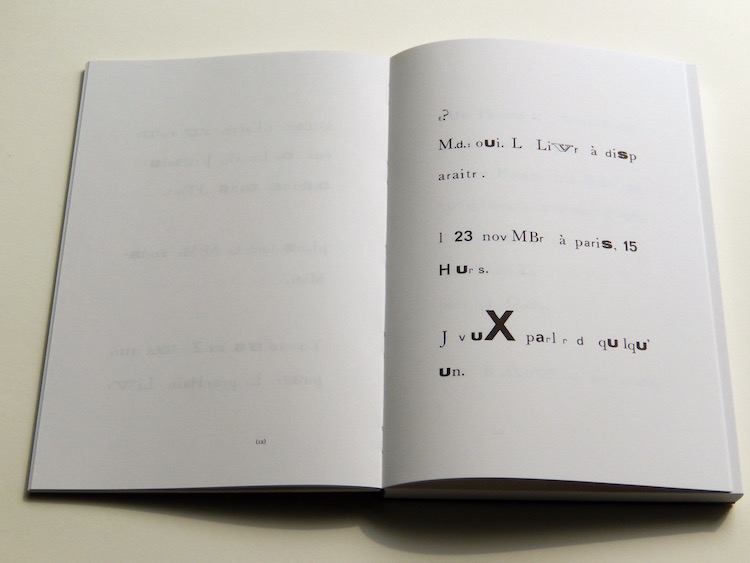 (12)
é?
M.d.: oui. L Livr à disp
araitr .
l 23 nov MBr à paris, 15
H urs.
J v uX parl r d qu lqu'
un.